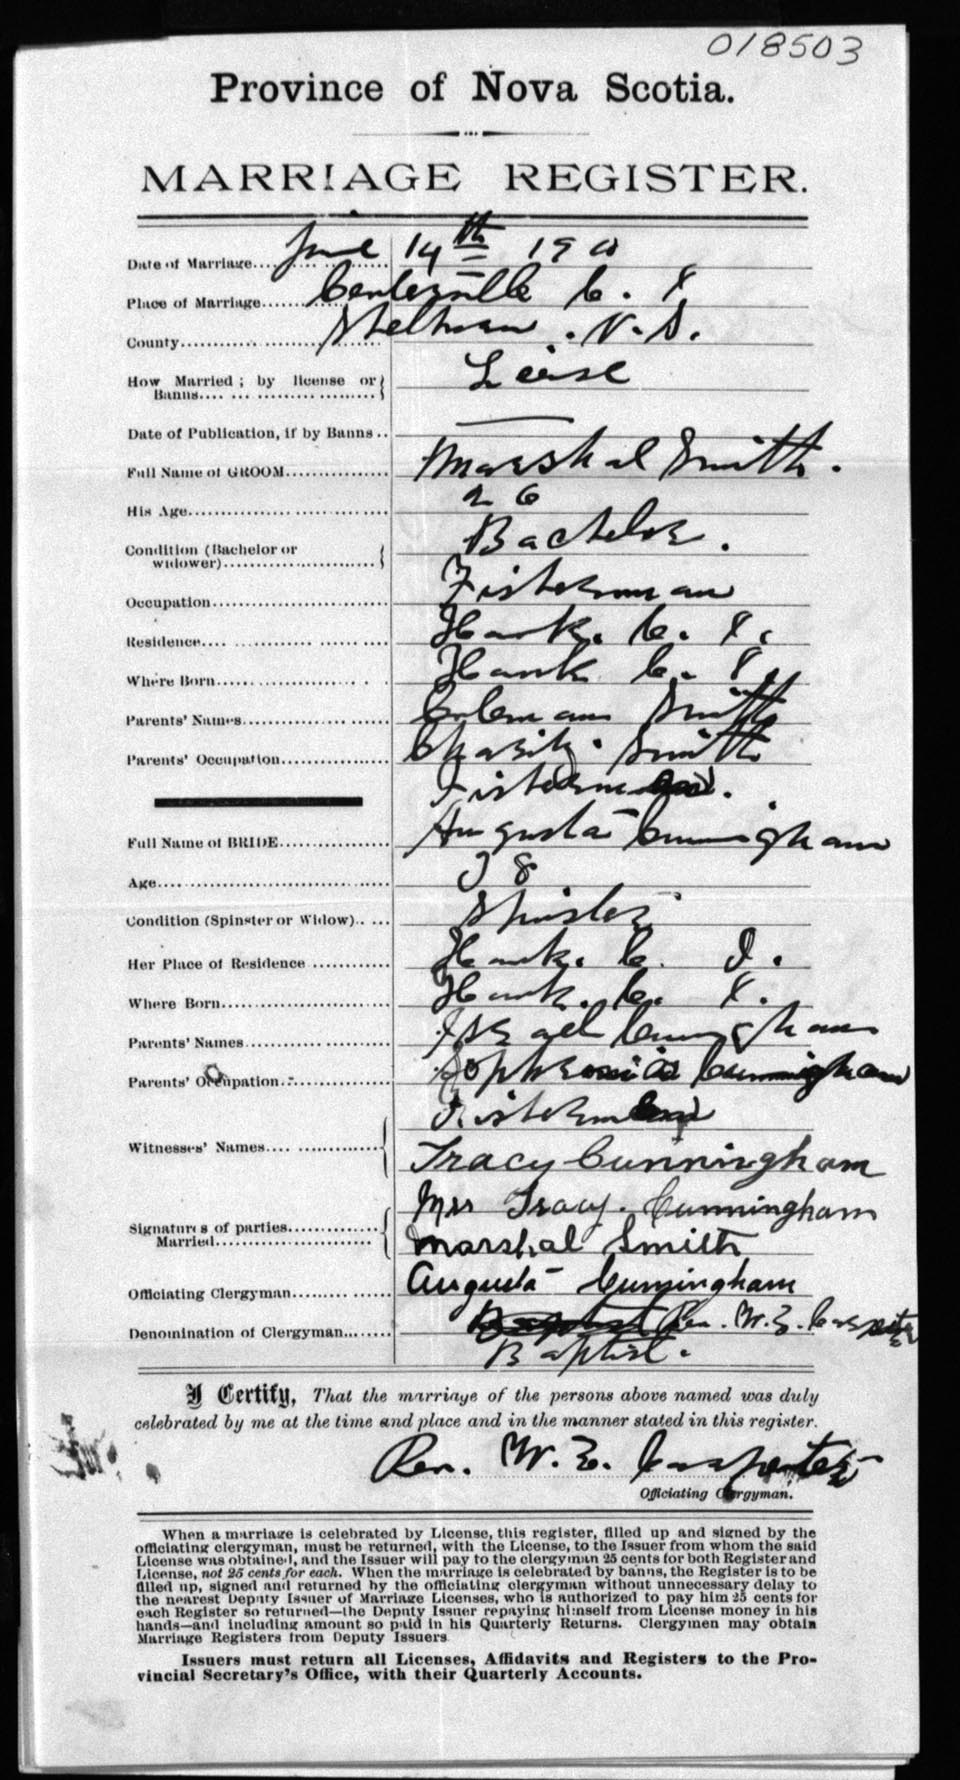 018503
Province of Nova Scotia.
MARRIAGE REGISTER.
Date of Marriage.... June 14th 190
Place of Marriage...... Centerville C. I.
County.................... N. S.
How Married ; by license or
Banns.... ... ................... Licise
Date of Publication, if by Banns .. —
Full Name of GROOM............... Marshal Smith.
His Age............................ 26
Condition (Bachelor or
widower)......................... Bachelor.
Occupation......................... Fisherman
Residence.... ..................... Hawk. C. I.
Where Born......................... Hawk C. I.
Parents' Names..................... Coleman Smith
Parents' Occupation................ Chasity Smith
Fisherman.
Full Name of BRIDE................. Augusta Cunningham
Age................................ 18
Condition (Spinster or Widow).. ... Spinster
Her Place of Residence ............ Hawk. C. I.
Where Born......................... Hawk. C. I.
Parents' Names..................... Israel Cunningham
Parents' Occupation................ Sophronia Cunningham
Fisherman
Witnesses' Names.... .............. Tracy Cunningham
Mrs Tracy. Cunningham
Signatures of parties..............
Married........................ Marshal Smith
Officiating Clergyman.............. Augusta Cunningham
Denomination of Clergyman.......... Baptist Rev. W. E. Carpenter
Baptist.
I Certify, That the marriage of the persons above named was duly
celebrated by me at the time and place and in the manner stated in this register.
Rev. W. E. Carpenter
Officiating Clergyman.
When a marriage is celebrated by License, this register, filled up and signed by the
officiating clergyman, must be returned, with the License, to the Issuer from whom the said
License was obtained, and the Issuer will pay to the clergyman 25 cents for both Register and
License, not 25 cents for each. When the marriage is celebrated by banns, the Register is to be
filled up, signed and returned by the officiating clergyman without unnecessary delay to
the nearest Deputy Issuer of Marriage Licenses, who is authorized to pay him 25 cents for
each Register so returned—the Deputy Issuer repaying himself from License money in his
hands—and including amount so paid in his Quarterly Returns. Clergymen may obtain
Marriage Registers from Deputy Issuers
Issuers must return all Licenses, Affidavits and Registers to the Pro-
vincial Secretary's Office, with their Quarterly Accounts.